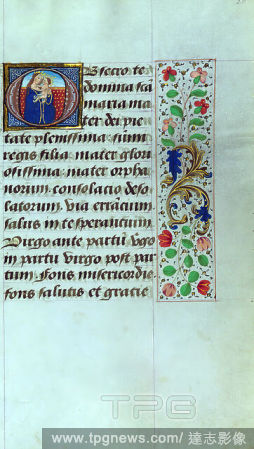 Obsecro te
domina scā
maria ma
ter dei pie
tate plenissima sūmi
regis filia mater glori
osissima mater orpha
norum consolacio deso
latorum via errancium
salus in te sperantium
Virgo ante partū vgo
in partu virgo post par
tum fons misericordie
fons salutis et gracie
TPG
www.tpgnews.com/ 達志影像